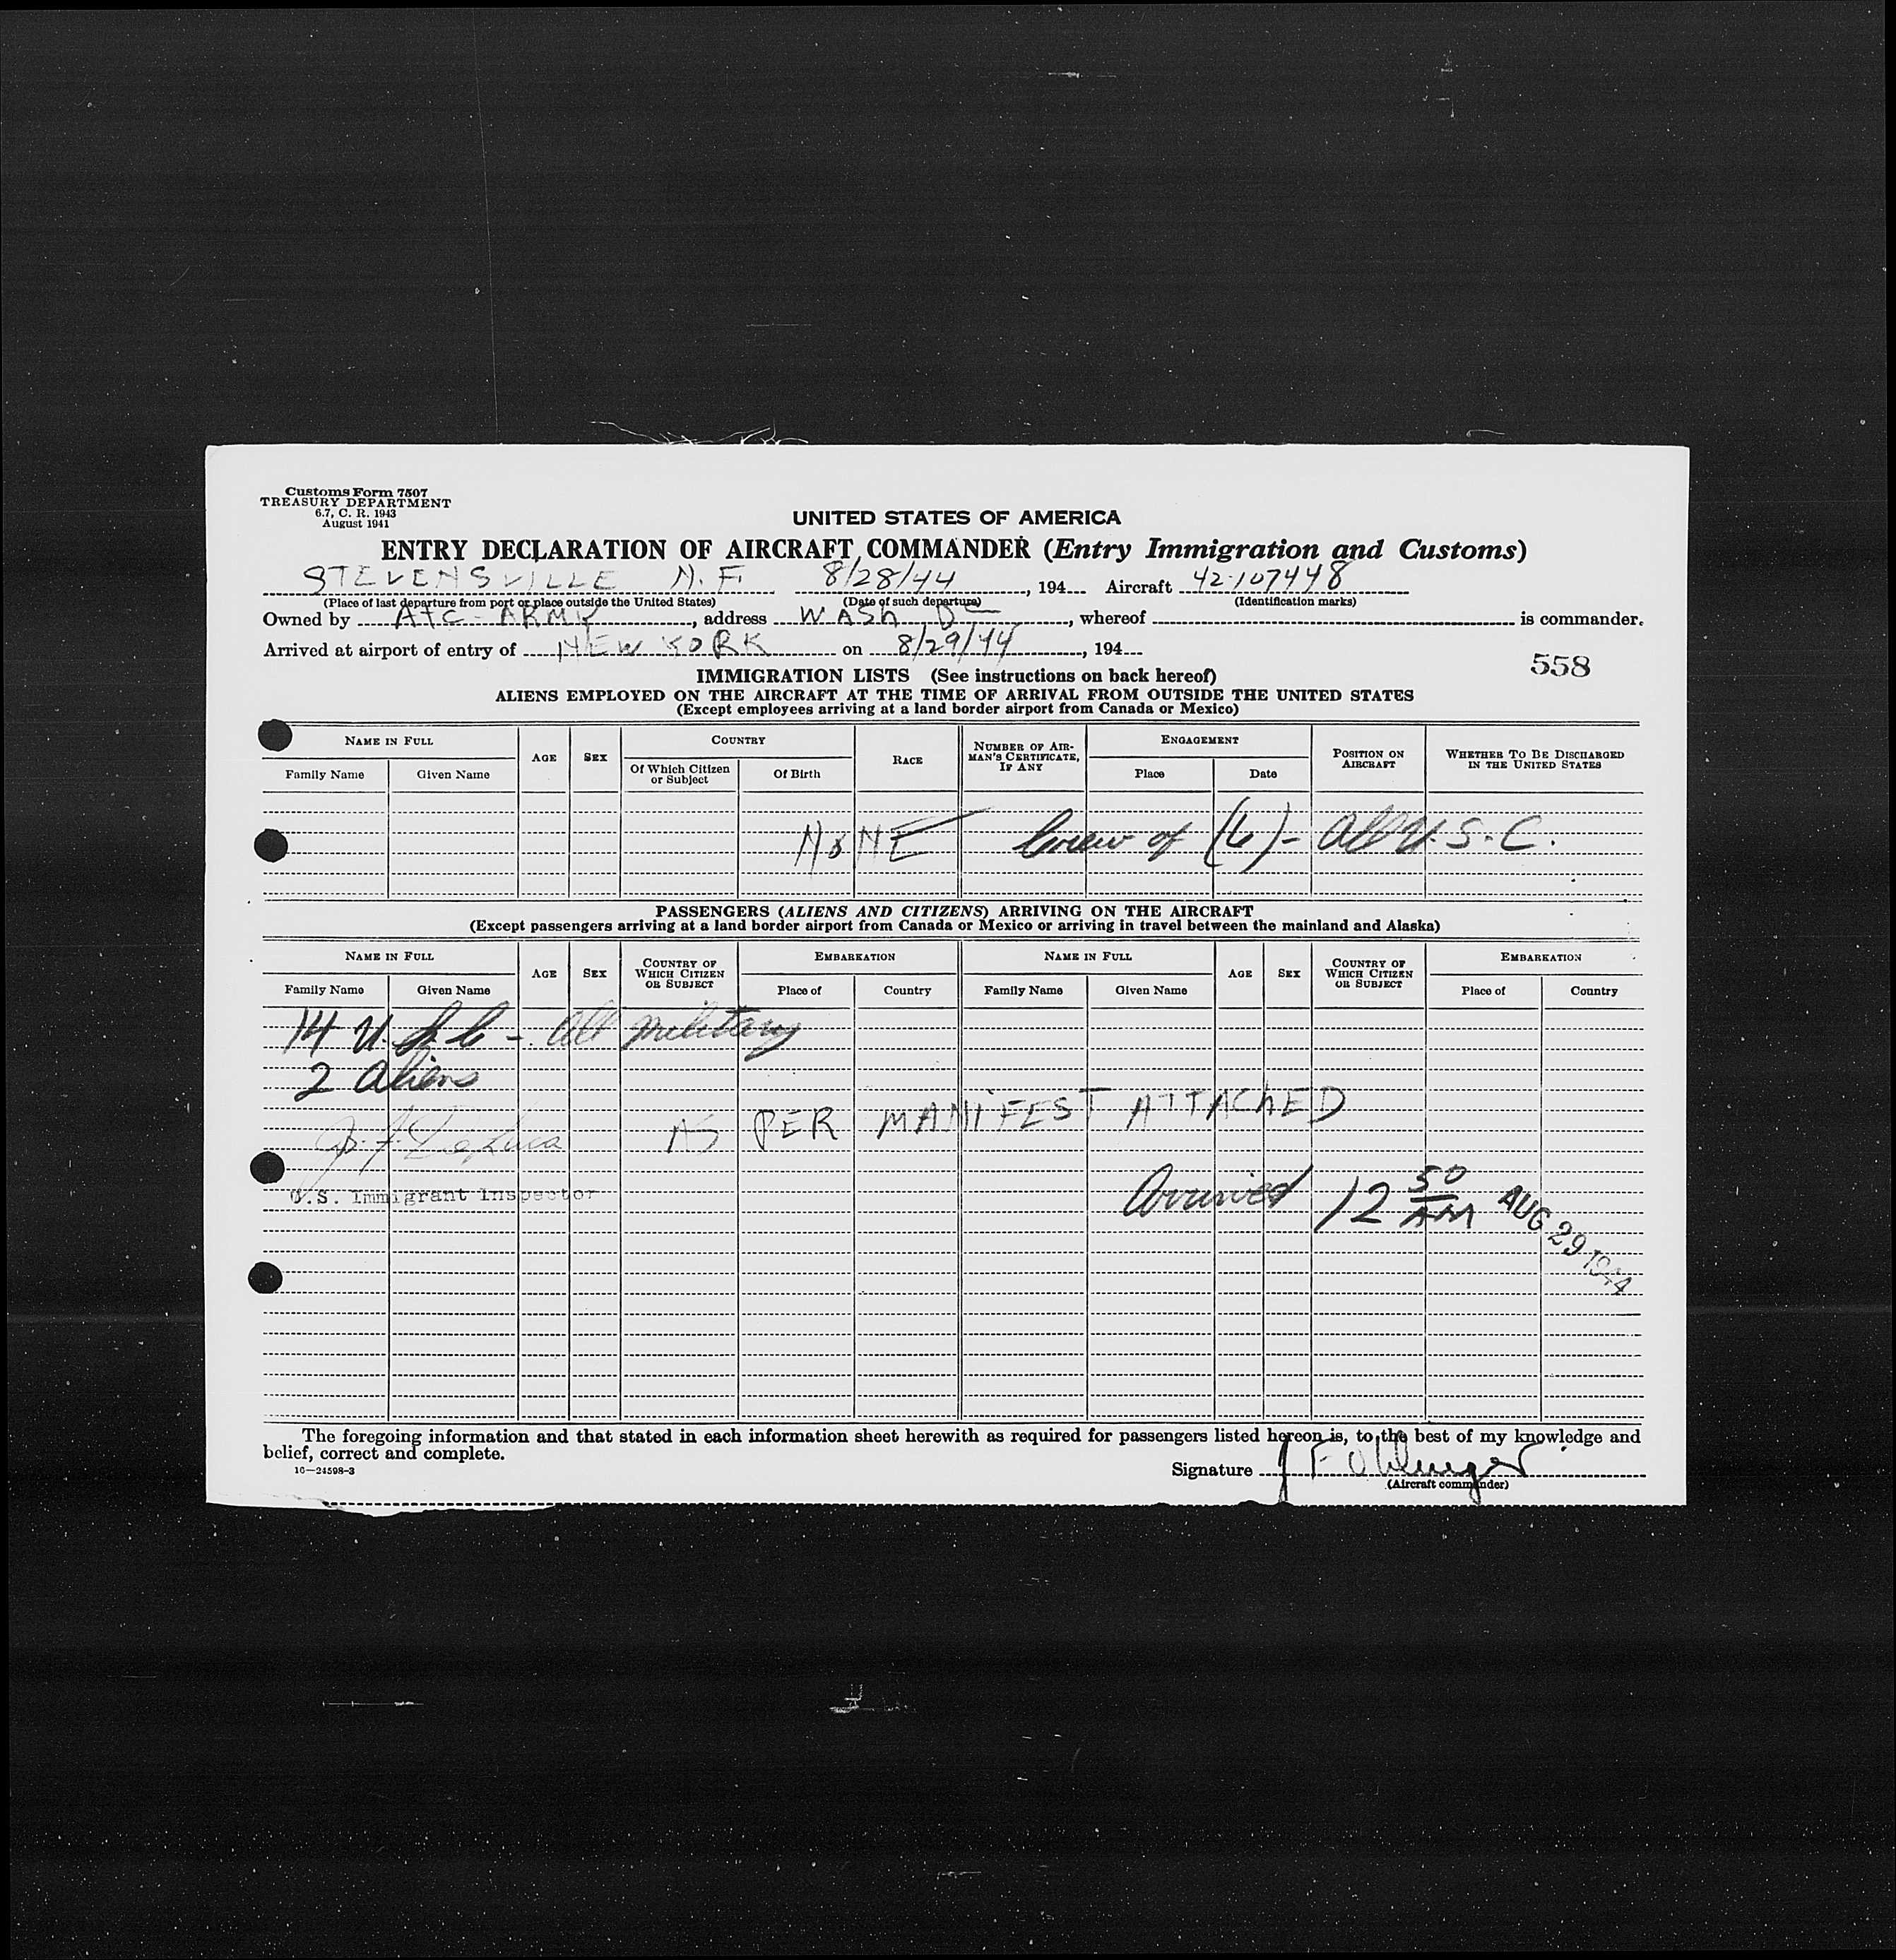 Customs Form 7507
TREASURY DEPARTMENT
6.7, C. R. 1943
August 1941
UNITED STATES OF AMERICA
ENTRY DECLARATION OF AIRCRAFT COMMANDER (Entry Immigration and Customs)
STEVENSVILLE N.F. 8/28/44, 194 Aircraft 42-107448
(Place of last departure from port or place outside the United States) (Date of such departure) (Identification marks)
Owned by ATC - ARMY, address WASH DC, whereof is commander.
Arrived at airport of entry of NEW YORK on 8/29/44, 194
558
IMMIGRATION LISTS (See instructions on back hereof)
ALIENS EMPLOYED ON THE AIRCRAFT AT THE TIME OF ARRIVAL FROM OUTSIDE THE UNITED STATES
(Except employees arriving at a land border airport from Canada or Mexico)
NAME IN FULL AGE SEX COUNTRY RACE NUMBER OF AIRMAN'S CERTIFICATE, IF ANY ENGAGEMENT POSITION ON AIRCRAFT WHETHER TO BE DISCHARGED IN THE UNITED STATES
Family Name Given Name Of Which Citizen or Subject Of Birth Place Date
NONE Crew of (6) - All U.S.C.
PASSENGERS (ALIENS AND CITIZENS) ARRIVING ON THE AIRCRAFT
(Except passengers arriving at a land border airport from Canada or Mexico or arriving in travel between the mainland and Alaska)
NAME IN FULL AGE SEX COUNTRY OF WHICH CITIZEN OR SUBJECT EMBARKATION NAME IN FULL AGE SEX COUNTRY OF WHICH CITIZEN OR SUBJECT EMBARKATION
Family Name Given Name Place of Country Family Name Given Name Place of Country
14 U.S.C - All military
2 aliens
AS PER MANIFEST ATTACHED
DeLuca
U.S. Immigrant Inspector
Arrived 12 50 AM AUG 29 1944
The foregoing information and that stated in each information sheet herewith as required for passengers listed hereon is, to the best of my knowledge and
belief, correct and complete.
16—24598-3
Signature J F Ohlinger
(Aircraft commander)